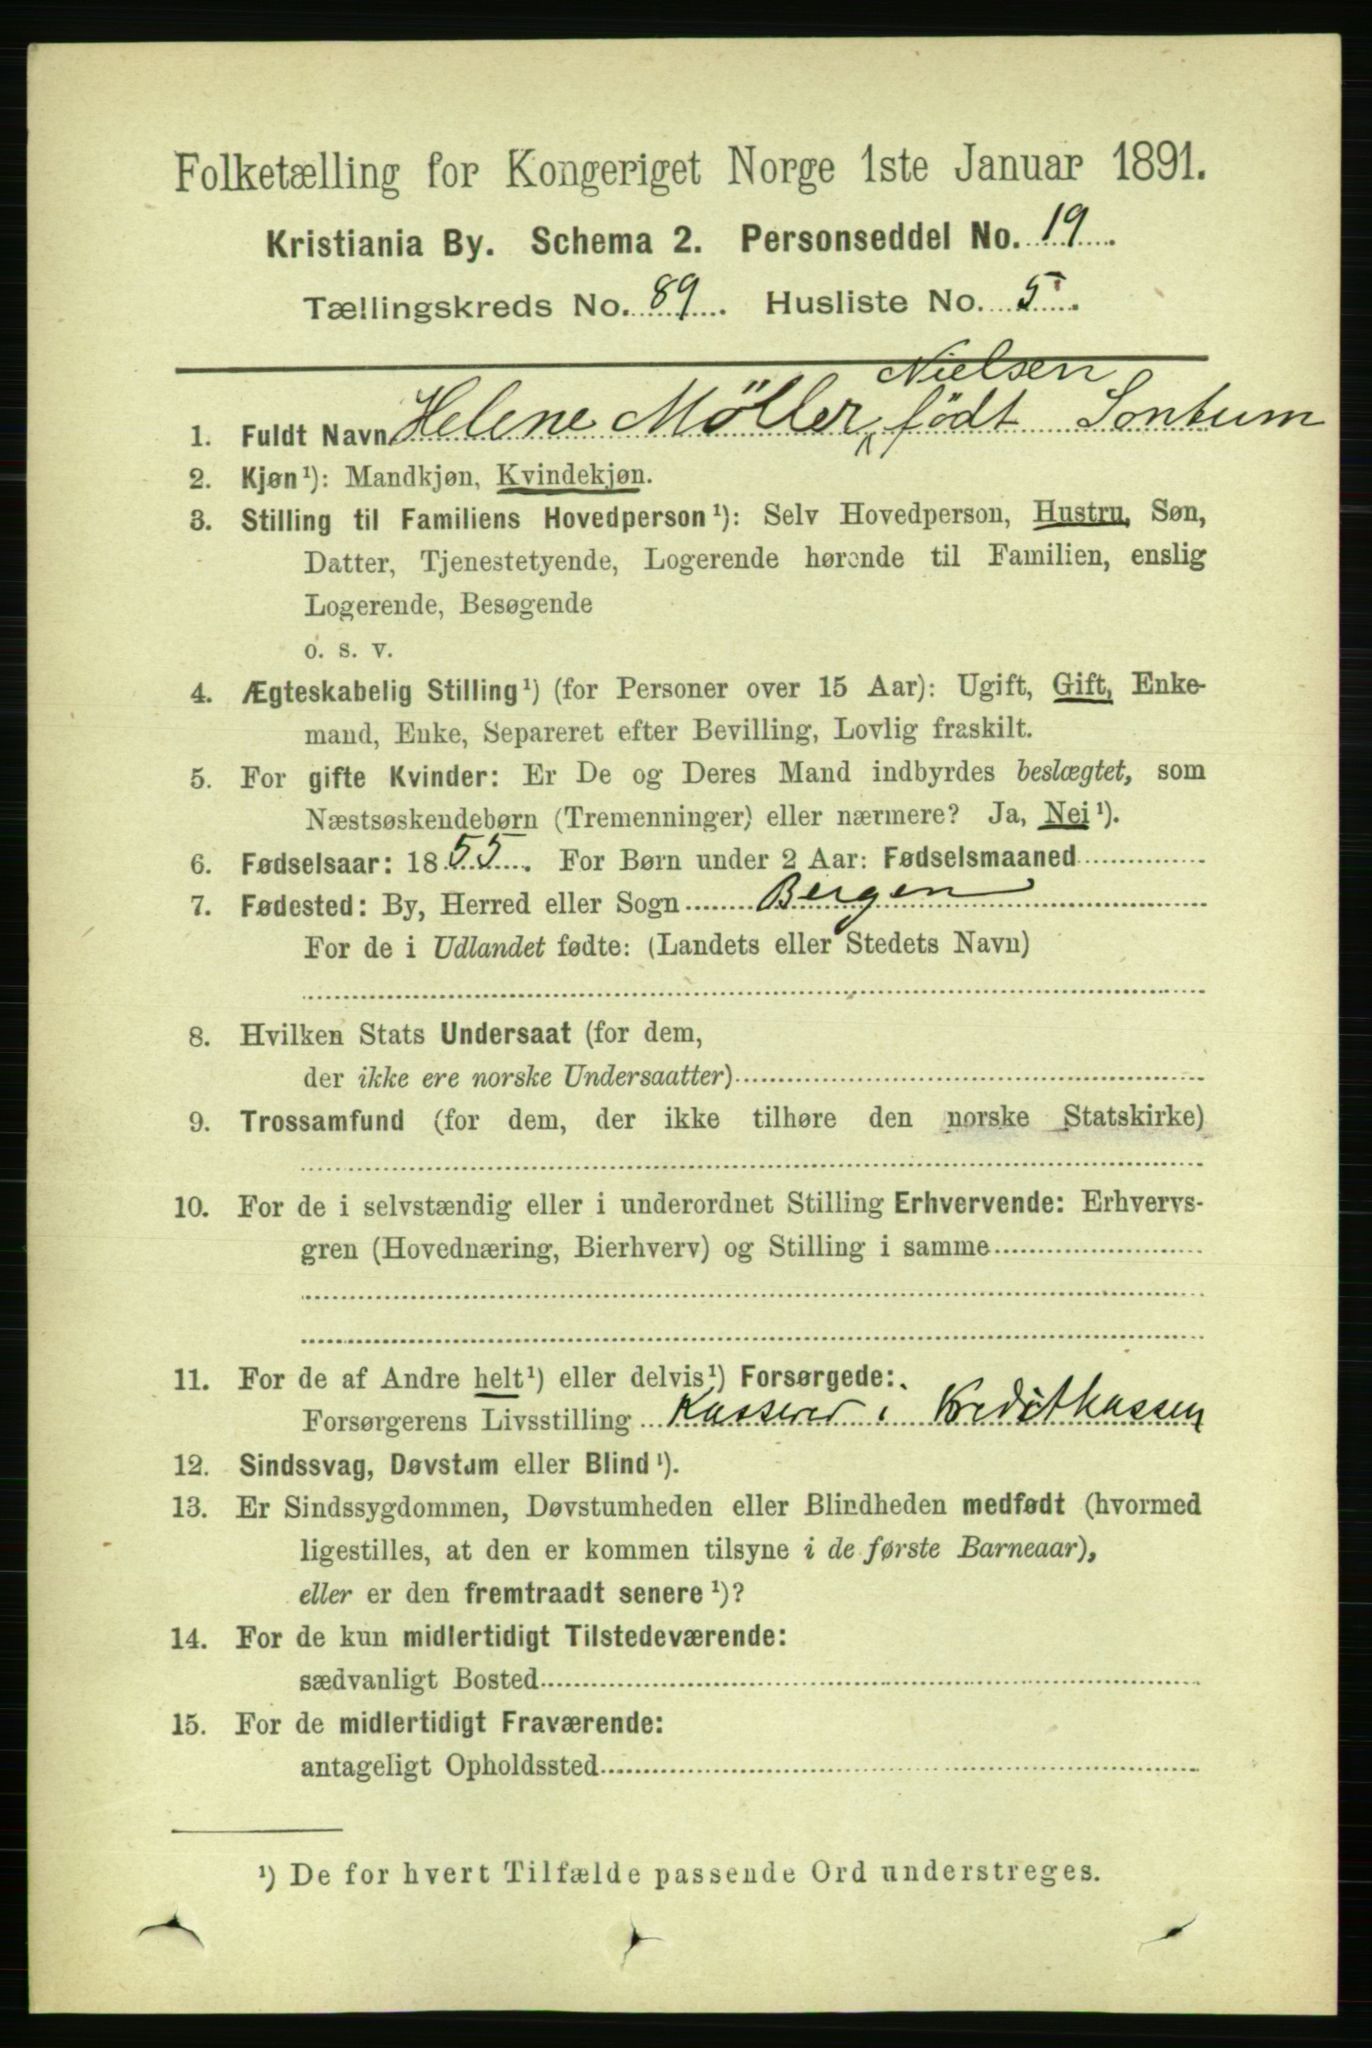 Folketælling for Kongeriget Norge 1ste Januar 1891.
Kristiania By. Schema 2. Personseddel No. 19.
Tællingskreds No. 89. Husliste No. 5.
Nielsen
1. Fuldt Navn Helene Møller, født Sontum
2. Kjøn¹): Mandkjøn, Kvindekjøn.
3. Stilling til Familiens Hovedperson¹): Selv Hovedperson, Hustru, Søn,
Datter, Tjenestetyende, Logerende hørende til Familien, enslig
Logerende, Besøgende
o. s. v.
4. Ægteskabelig Stilling¹) (for Personer over 15 Aar): Ugift, Gift, Enke-
mand, Enke, Separeret efter Bevilling, Lovlig fraskilt.
5. For gifte Kvinder: Er De og Deres Mand indbyrdes beslægtet, som
Næstsøskendebørn (Tremenninger) eller nærmere? Ja, Nei¹).
6. Fødselsaar: 1855. For Børn under 2 Aar: Fødselsmaaned
7. Fødested: By, Herred eller Sogn Bergen
For de i Udlandet fødte: (Landets eller Stedets Navn)
8. Hvilken Stats Undersaat (for dem,
der ikke ere norske Undersaatter)
9. Trossamfund (for dem, der ikke tilhøre den norske Statskirke)
10. For de i selvstændig eller i underordnet Stilling Erhvervende: Erhvervs-
gren (Hovednæring, Bierhverv) og Stilling i samme
11. For de af Andre helt¹) eller delvis¹) Forsørgede:
Forsørgerens Livsstilling Kasserer i Kreditkassen
12. Sindssvag, Døvstum eller Blind¹).
13. Er Sindssygdommen, Døvstumheden eller Blindheden medfødt (hvormed
ligestilles, at den er kommen tilsyne i de første Barneaar),
eller er den fremtraadt senere¹)?
14. For de kun midlertidigt Tilstedeværende:
sædvanligt Bosted
15. For de midlertidigt Fraværende:
antageligt Opholdssted
¹) De for hvert Tilfælde passende Ord understreges.